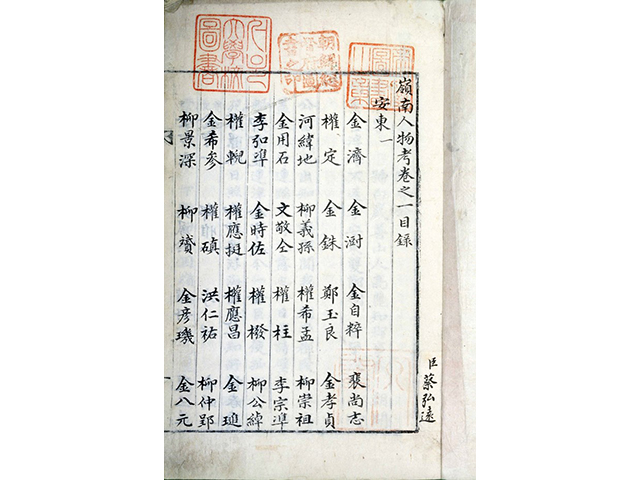 嶺南人物考卷之一目録
安東一
金濟 金澍 金自粹 裵尚志
權定 金銖 鄭玉良 金孝貞
河緯地 柳義孫 權希孟 柳崇祖
金用石 文敬仝 權柱 李宗準
李弘準 金時佐 權橃 柳公綽
權輗 權應挺 權應昌 金璡
金希參 權磌 洪仁祐 柳仲郢
柳景深 柳贇 金彦璣 金八元
臣蔡弘遠